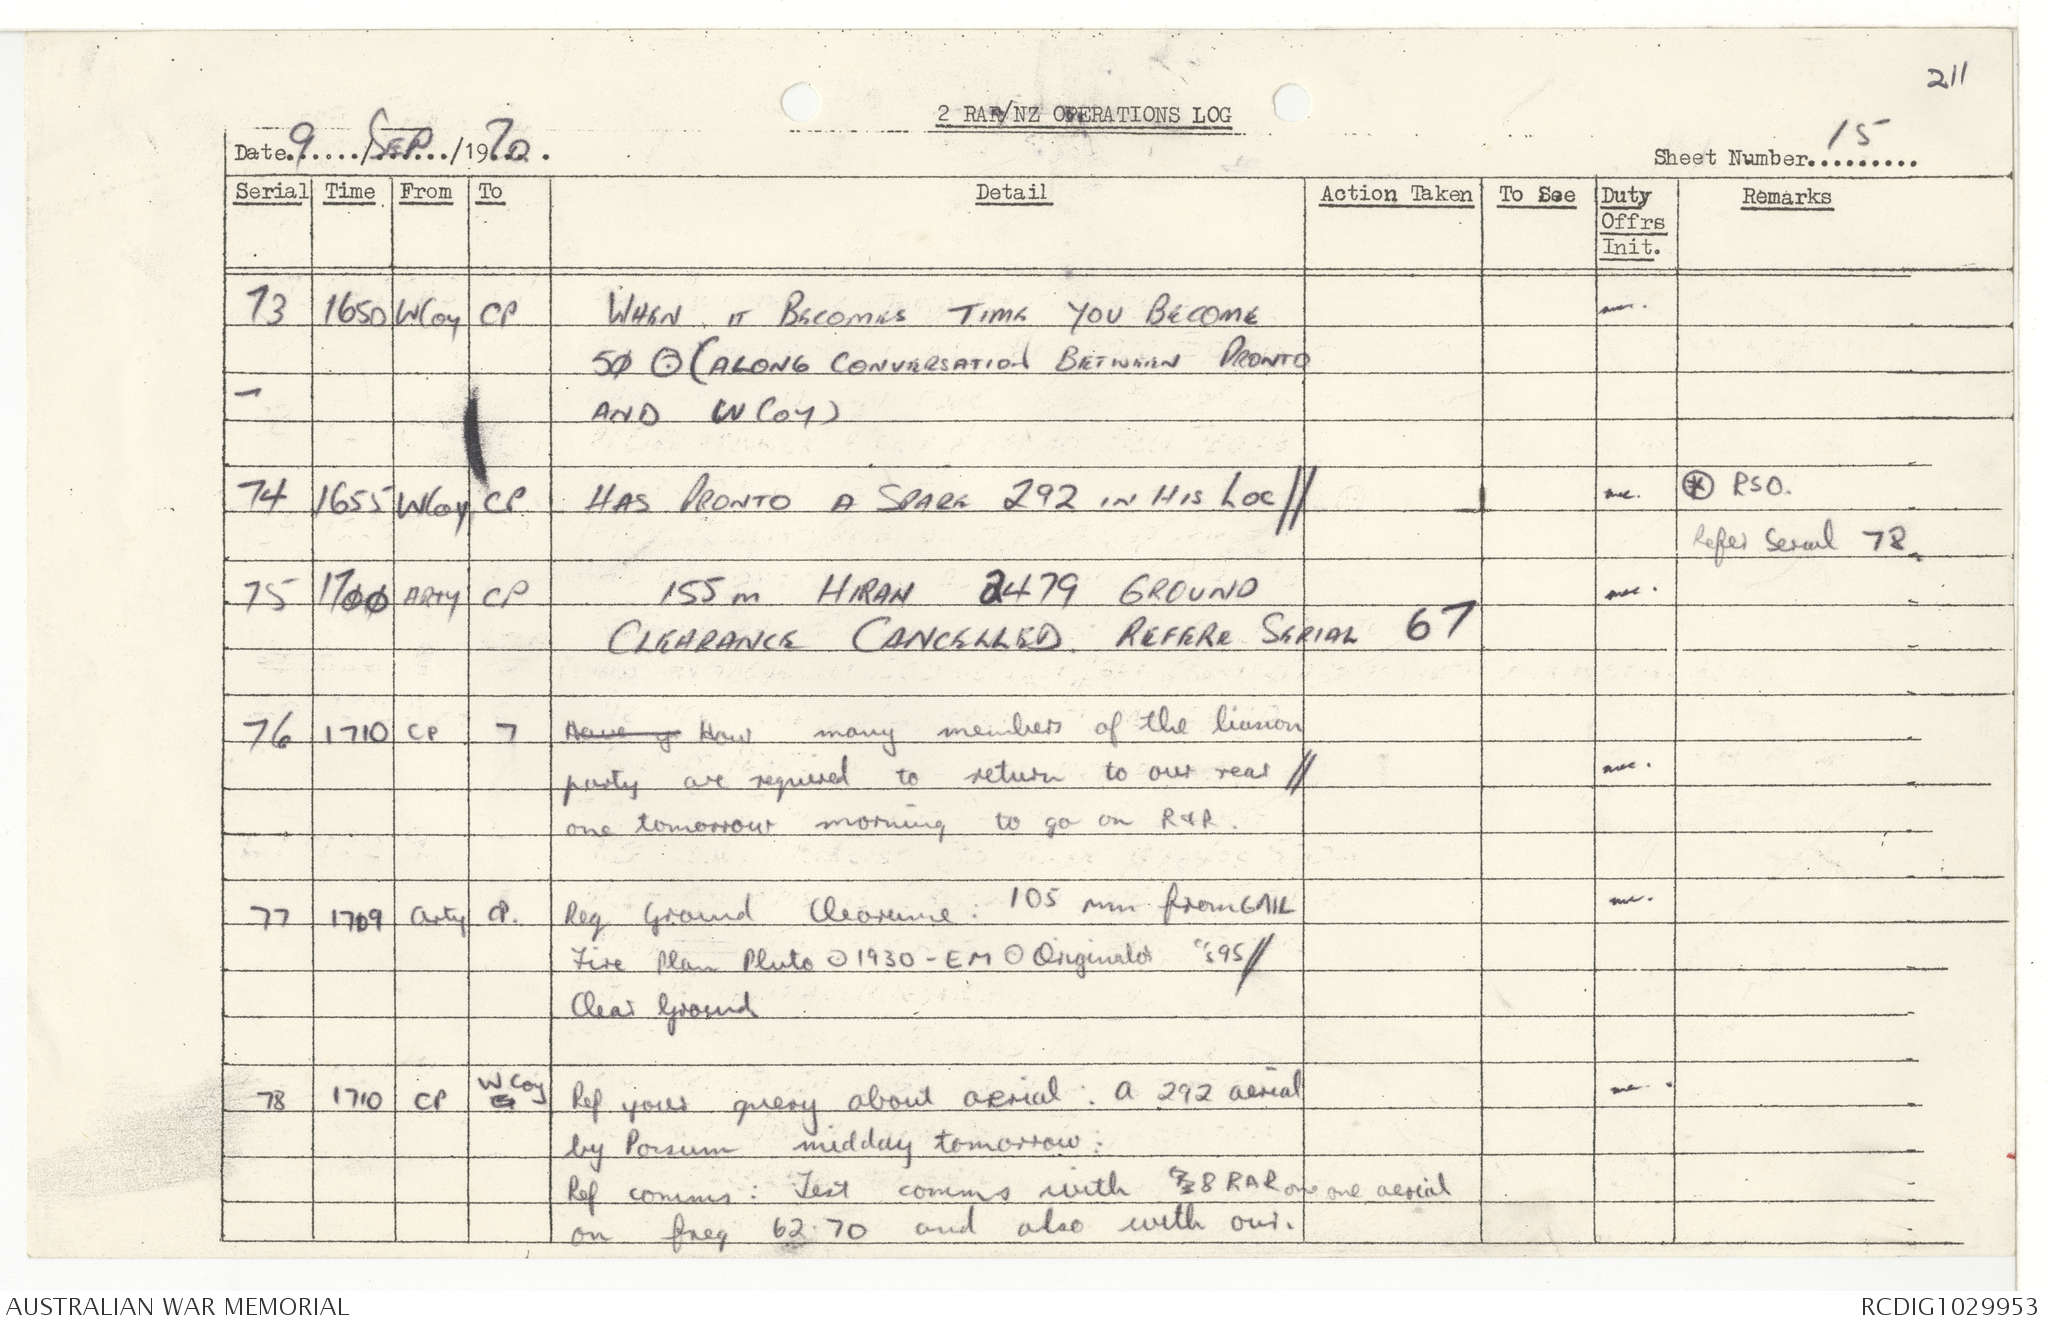 211
2 RAR/NZ OPERATIONS LOG
Date 9 / SEP / 1970.
Sheet Number 15
Serial Time From To Detail Action Taken To See Duty Offrs Init. Remarks
73 1650 WCoy CP WHEN IT BECOMES TIME YOU BECOME
50 (ALONG CONVERSATION BETWEEN PRONTO
AND WCoy)
74 1655 WCoy CP HAS PRONTO A SPARE 292 IN HIS LOC // RSO.
Refer Serial 78
75 1700 ARTY CP 155m HIRAN 2479 GROUND
CLEARANCE CANCELLED. REFERE SERIAL 67
76 1710 CP 7 Have y How many members of the liasion
party are required to return to our rear //
one tomorrow morning to go on R&R.
77 1709 Arty CP. Req Ground Clearance: 105 mm from GAIL
Fire Plan Pluto 1930 - EM Originator 95 //
Clear Ground
78 1710 CP WCoy Ref your query about aerial: A 292 aerial
by Possum midday tomorrow:
Ref comms: Test comms with 8 RAR on one aerial
on freq 62.70 and also with our.
AUSTRALIAN WAR MEMORIAL
RCDIG1029953